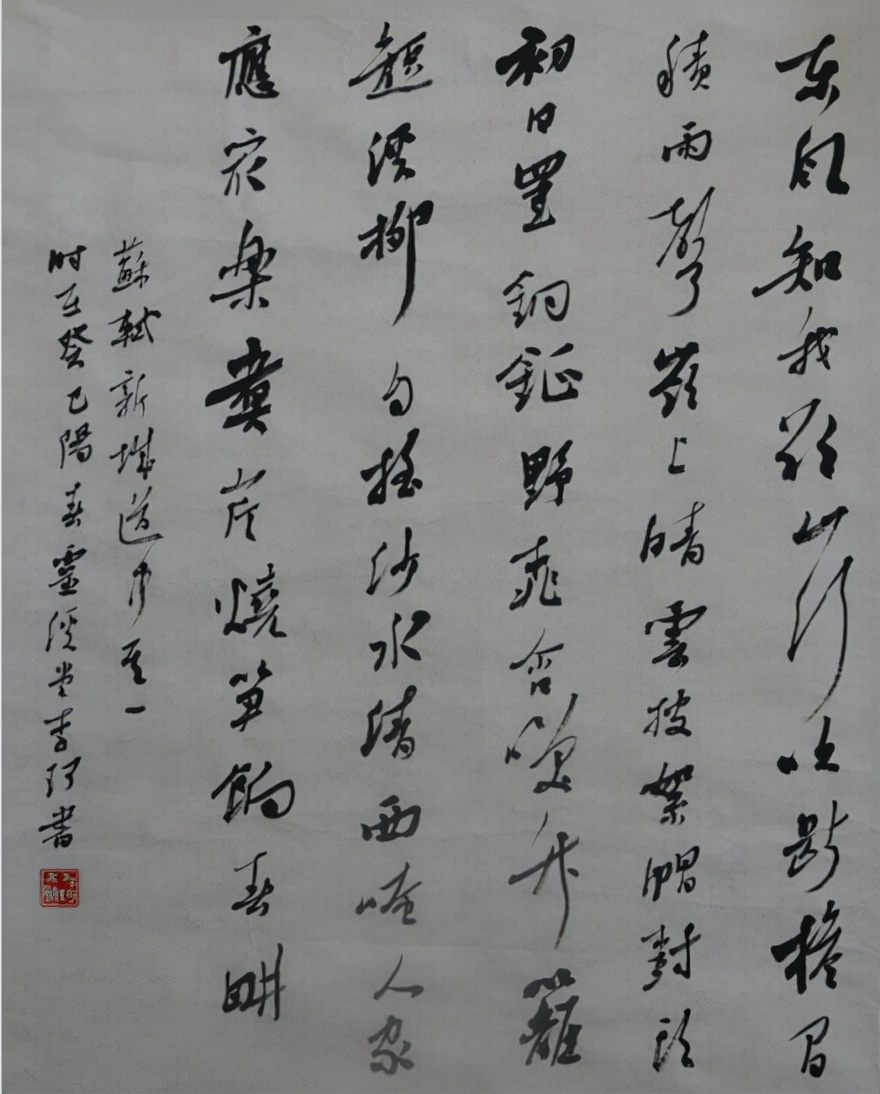 東風知我欲山行吹斷檐間
積雨聲嶺上晴雲披絮帽樹頭
初日罣銅鉦野桃含笑竹籬
短溪柳自搖沙水清西崦人家
應冣樂煮芹燒筍餉春畊
蘇軾新城道中其一
时在癸巳陽春靈溪堂李書